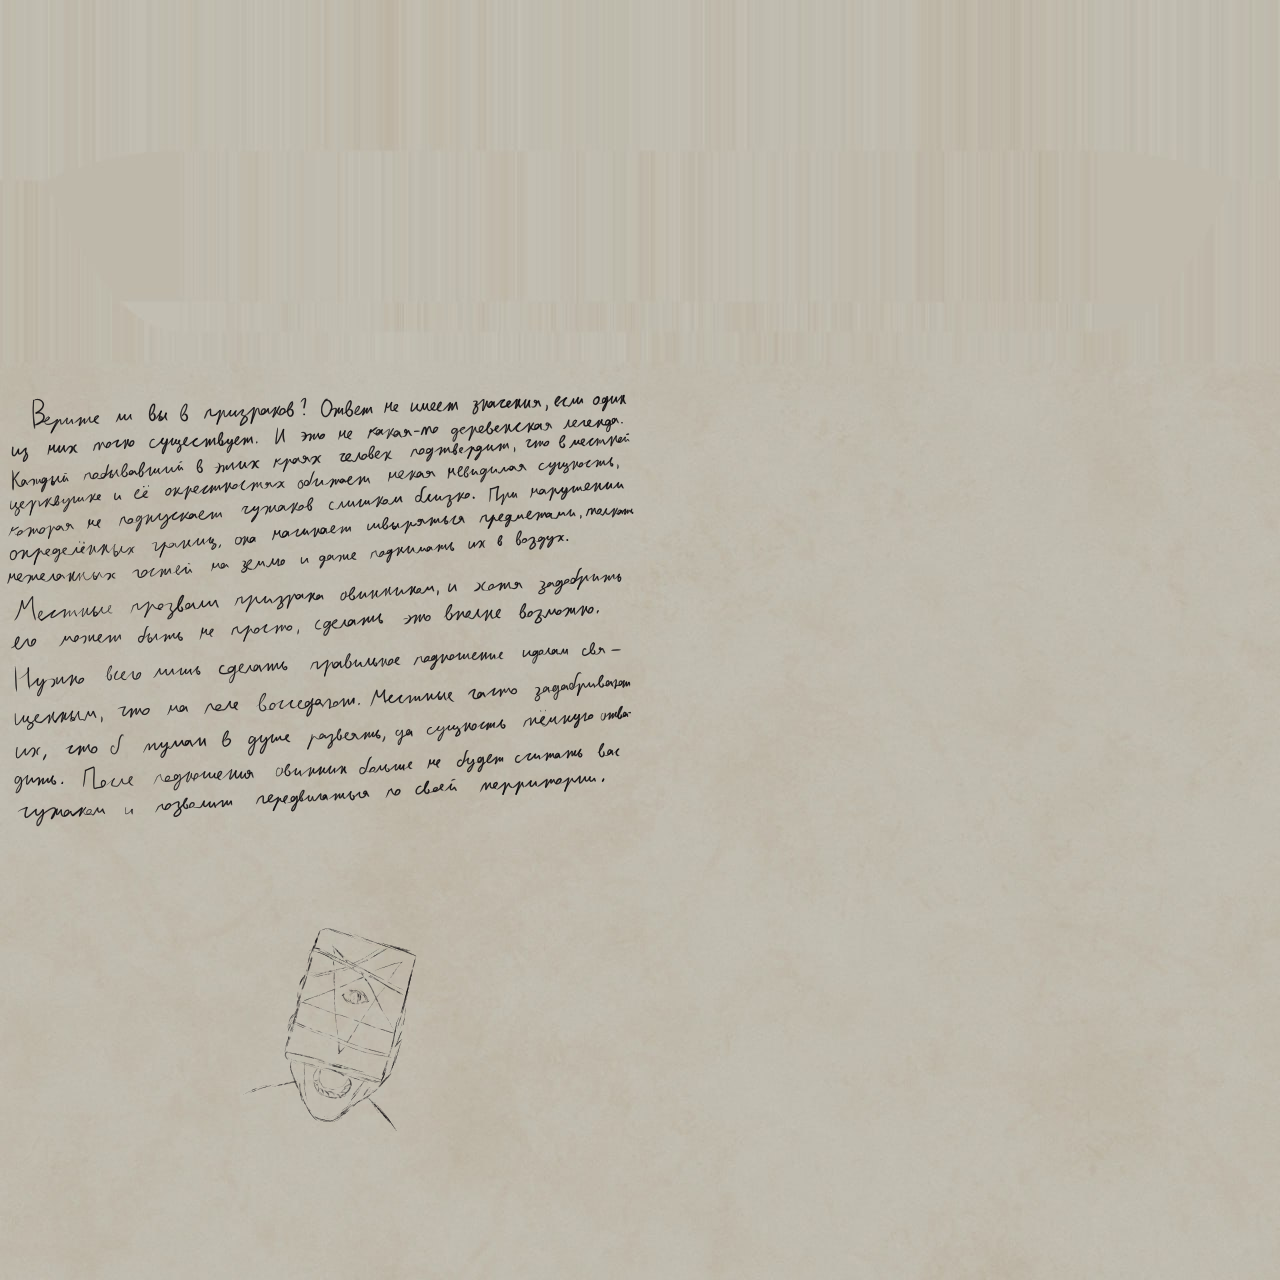 Верите ли вы в призраков? Ответ не имеет значения, если один
из них точно существует. И это не какая-то деревенская легенда.
Каждый побывавший в этих краях человек подтвердит, что в местной
церквушке и её окрестностях обитает некая невидимая сущность,
которая не подпускает чужаков слишком близко. При нарушении
определённых границ, она начинает швыряться предметами, толкать
нежеланных гостей на землю и даже поднимать их в воздух.
Местные прозвали призрака овинником, и хотя задобрить
его может быть не просто, сделать это вполне возможно.
Нужно всего лишь сделать правильное подношение идолам свя-
щенным, что на поле восседают. Местные часто задабривают
их, что б туман в душе развеять, да сущность тёмную отва-
дить. После подношения овинник больше не будет считать вас
чужаком и позволит передвигаться по своей территории.